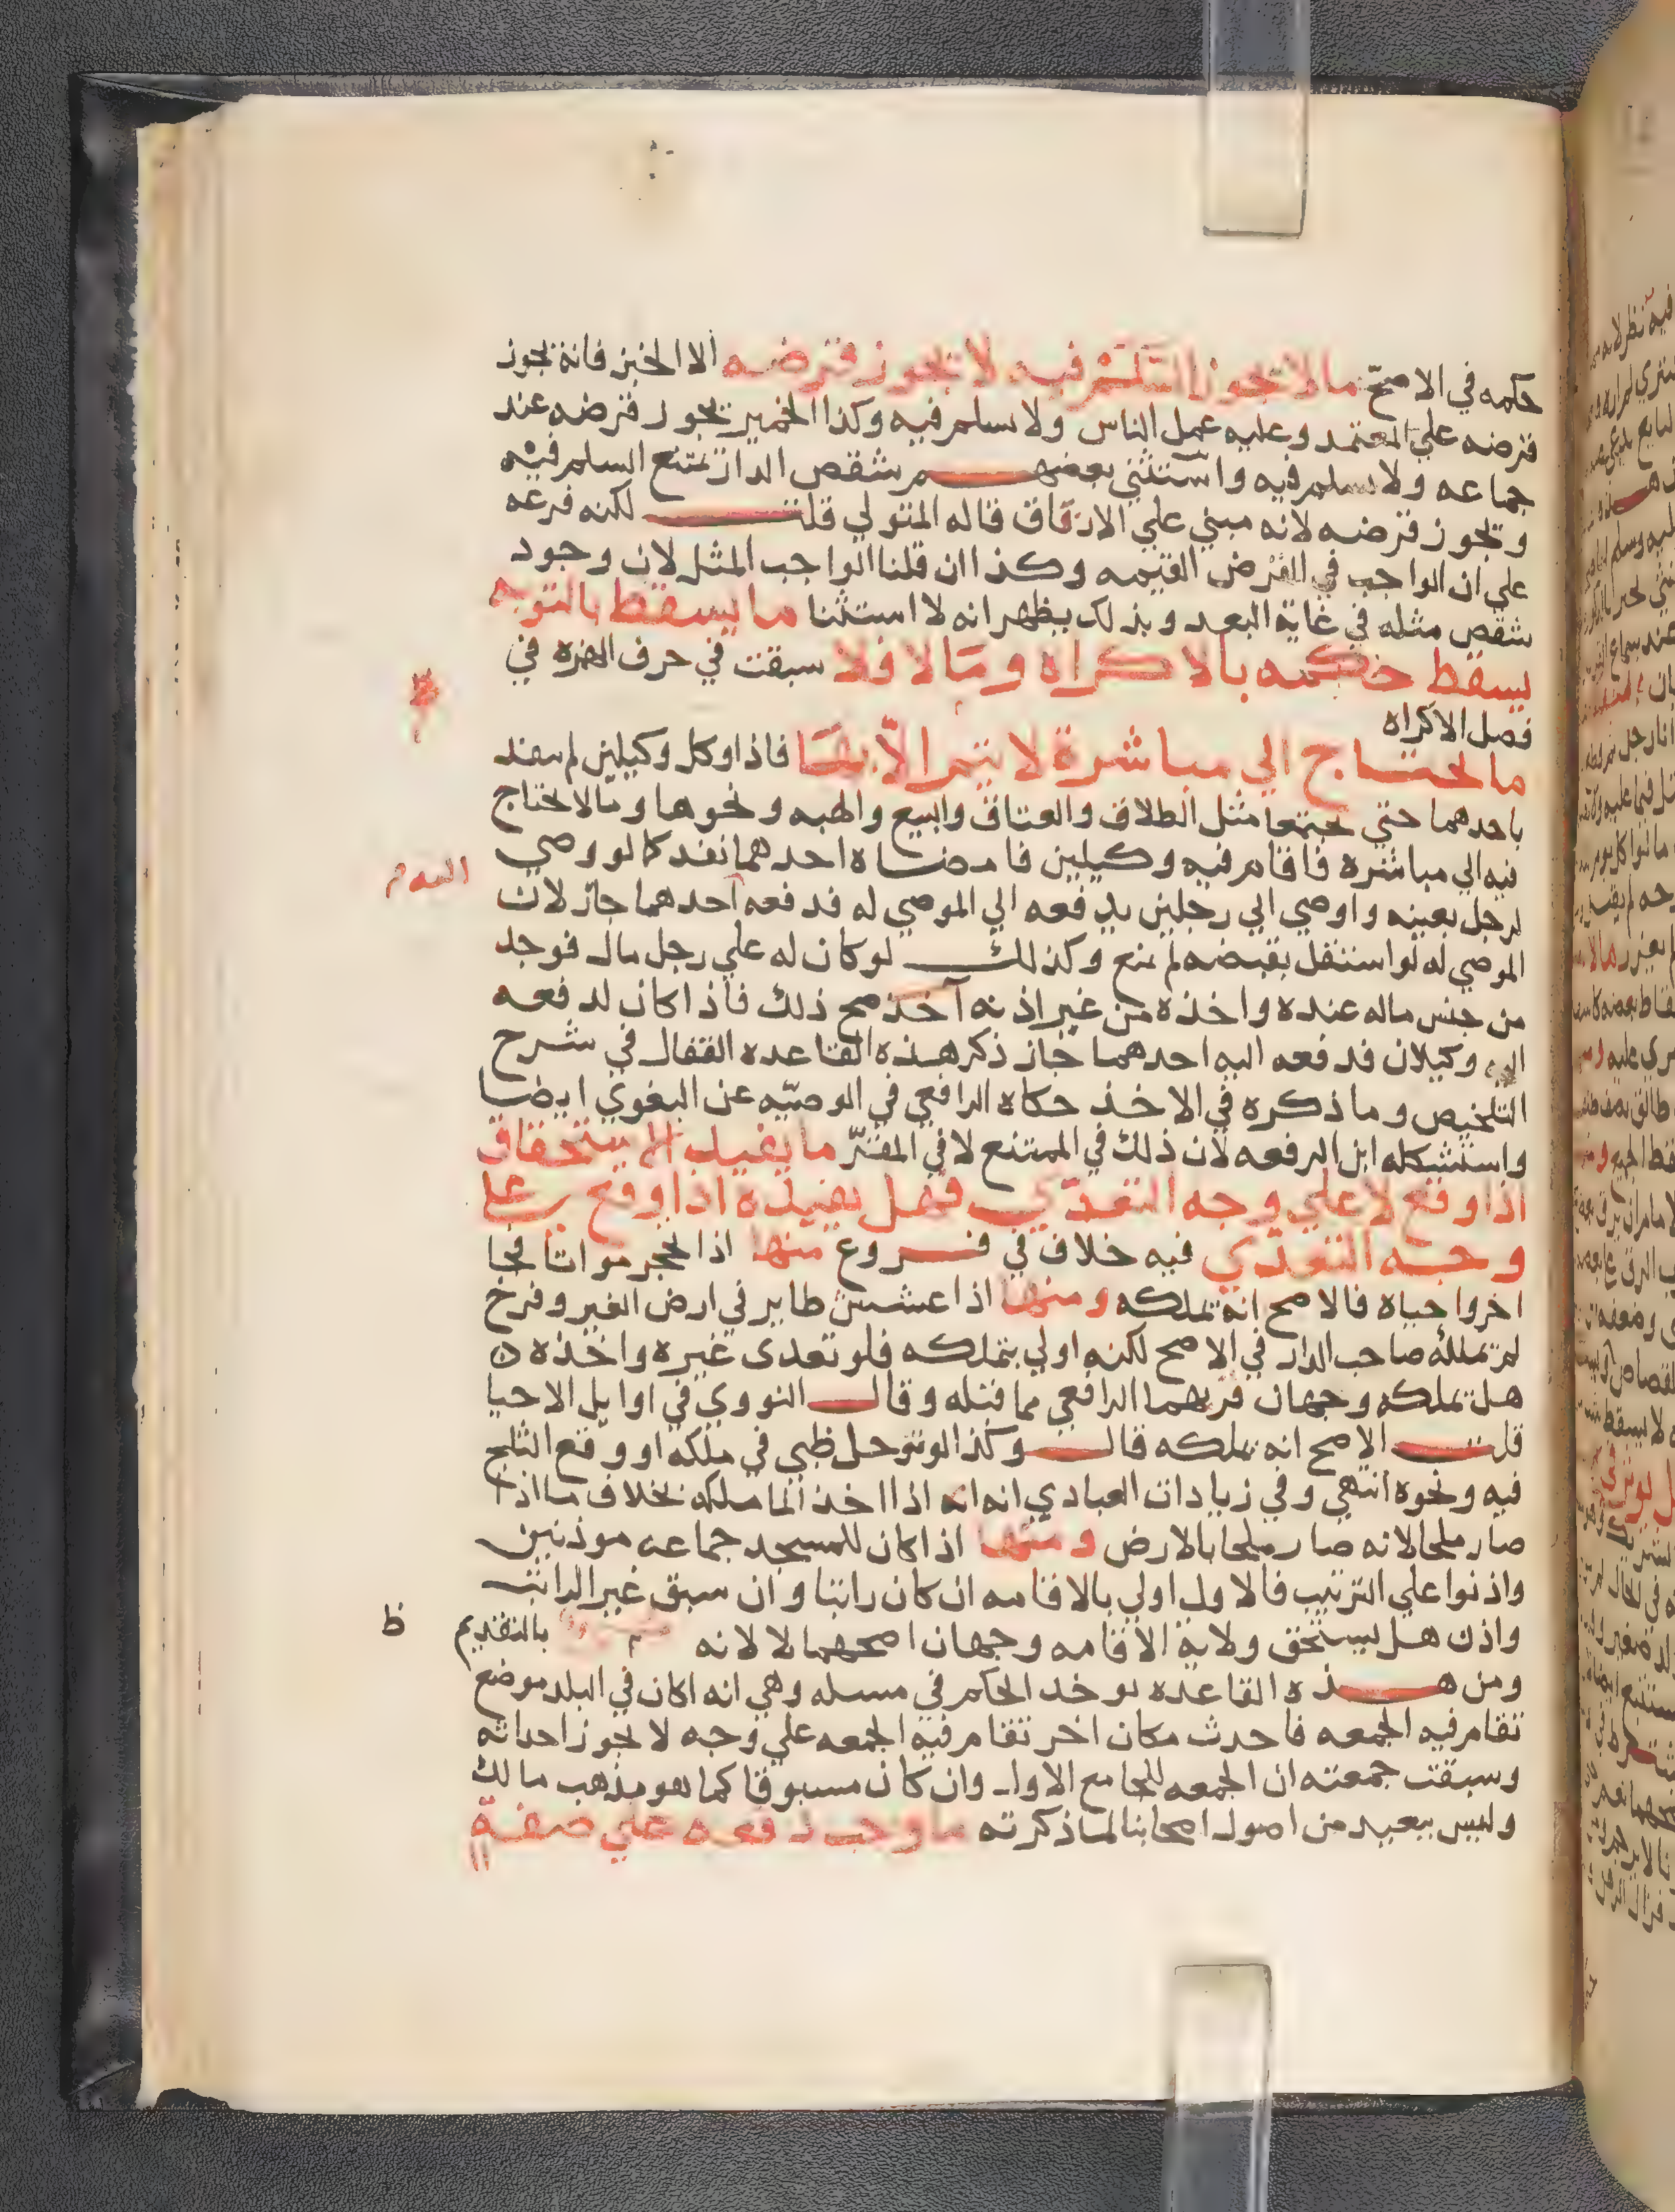 حكمه في الاصحّ ما لا يجوز السَّلَمْ فيه لا يجوز قرضه الا الخبز فانه يجوز
قرضه علي المعتمد وعليه عمل الناس ولا يسلم فيه وكذا الخمير يجوز قرضه عند
جماعه ولا يسلم فيه واستثني بعضهم شقص الدار يمتنع السلم فيه
ويجوز قرضه لانه مبني علي الارفاق قاله المتولي قلت لكنه فرعه
علي ان الواجب في القرض القيمه وكذا ان قلنا الواجب المثل لان وجود
شقص مثله في غاية البعد وبذلك يظهر انه لا استثنا ما يسقط بالتوبه
يسقط حكمه بالاكراه ومَا لا فلا سبقت في حرف الهمزه في
فصل الاكراه
ما يحتاج الي مباشرة لا يتم الّا بهَا فاذا وكل وكيلين لم ينفذ
باحدهما حتي يجتمعا مثل الطلاق والعتاق والبيع والهبه ونحوها وما لا يحتاج
فيه الي مباشره فاقام فيه وكيلين فامضاه احدهما نفذ كما لو وصي
لرجل بعينه واوصي الي رجلين بدفعه الي الموصي له فدفعه احدهما جاز لان
الموصي له لو استقل بقبضه لم يمنع وكذلك لو كان له علي رجل مال فوجد
من جنس ماله عنده واخذه من غير اذنه آخذ صح ذلك فاذا كان لدفعه
اليه وكيلان فدفعه اليه احدهما جاز ذكر هذه القاعده القفال في شرح
التلخيص وما ذكره في الاخذ حكاه الرافعي في الوصيّه عن البغوي ايضا
واستشكله ابن الرفعه لان ذلك في الممتنع لا في المقرّ ما يفيد الاستحقاق
اذا وقع لا علي وجه التعدّي فهل يفيده اذا وقع علي
وجه التعدّي فيه خلاف في فروع منها اذا تحجر مواتا فجا
اخر واحياه فالاصح انه يملكه ومنها اذا عشش طاير في ارض الغير وفرخ
لم يملكه صاحب الدار في الاصح لكنه اولي بتملكه فلو تعدى غيره واخذه
هل يملكه وجهان قربهما الرافعي مما قبله وقال النووي في اوايل الاحيا
قلت الاصح انه يملكه قال وكذا لو توحل ظبي في ملكه او وقع الثلج
فيه ونحوه انتهي وفي زيادات العبادي انه اذا اخذ الما ملكه بخلاف ما اذا
صار ملحا لانه صار ملحا بالارض ومنها اذا كان للمسجد جماعه موذنين
واذنوا علي الترتيب فالاول اولي بالاقامه ان كان راتبا وان سبق غير الراتب
واذن هل يستحق ولاية الاقامه وجهان اصحهما لا لانه بالتقديم
ظ
ومن هذه القاعده يوخذ الحكم في مسله وهي انه اكان في البلد موضع
تقام فيه الجمعه فاحدث مكان اخر تقام فيه الجمعه علي وجه لا يجوز احداثه
وسبقت جمعته ان الجمعه للجامع الاول وان كان مسبوقا كما هو مذهب مالك
وليس ببعيد من اصول اصحابنا لما ذكرته ما وجب دفعه علي صفة